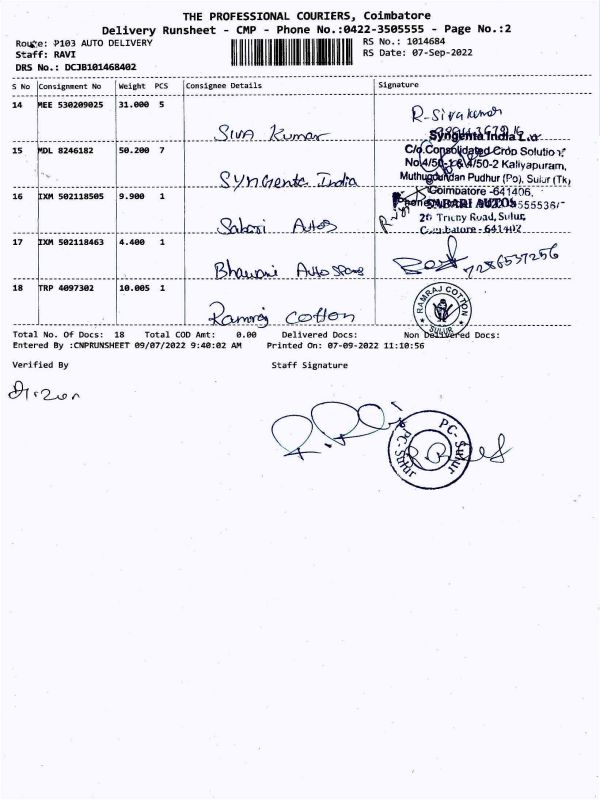 THE PROFESSIONAL COURIERS, Coimbatore
Delivery Runsheet - CMP - Phone No.:0422-3505555 - Page No.:2
Route: P103 AUTO DELIVERY
RS No.: 1014684
Staff: RAVI
RS Date: 07-Sep-2022
DRS No.: DCJB101468402
S No Consignment No Weight PCS Consignee Details Signature
14 MEE 530209025 31.000 5 Siva Kumar R-Sivakumar
15 MDL 8246182 50.200 7 Syngenta India
Syngenta India Ltd
C/o.Consolidated Crop Solution
No.4/50-1 & 4/50-2 Kaliyapuram,
Muthugoundan Pudhur (Po), Sulur (Tk)
Coimbatore -641406,
16 IXM 502118505 9.900 1 Sabari Autos
SABARI AUTOS
20 Trichy Road, Sulur,
Coimbatore - 641402
17 IXM 502118463 4.400 1 Bhavani Auto spare 7286537256
18 TRP 4097302 10.005 1 Ramraj Cotton
RAMRAJ COTTON
SULUR
Total No. Of Docs: 18 Total COD Amt: 0.00 Delivered Docs: Non Delivered Docs:
Entered By :CNPRUNSHEET 09/07/2022 9:40:02 AM Printed On: 07-09-2022 11:10:56
Verified By Staff Signature
PC-Sulur
PC-Sulur